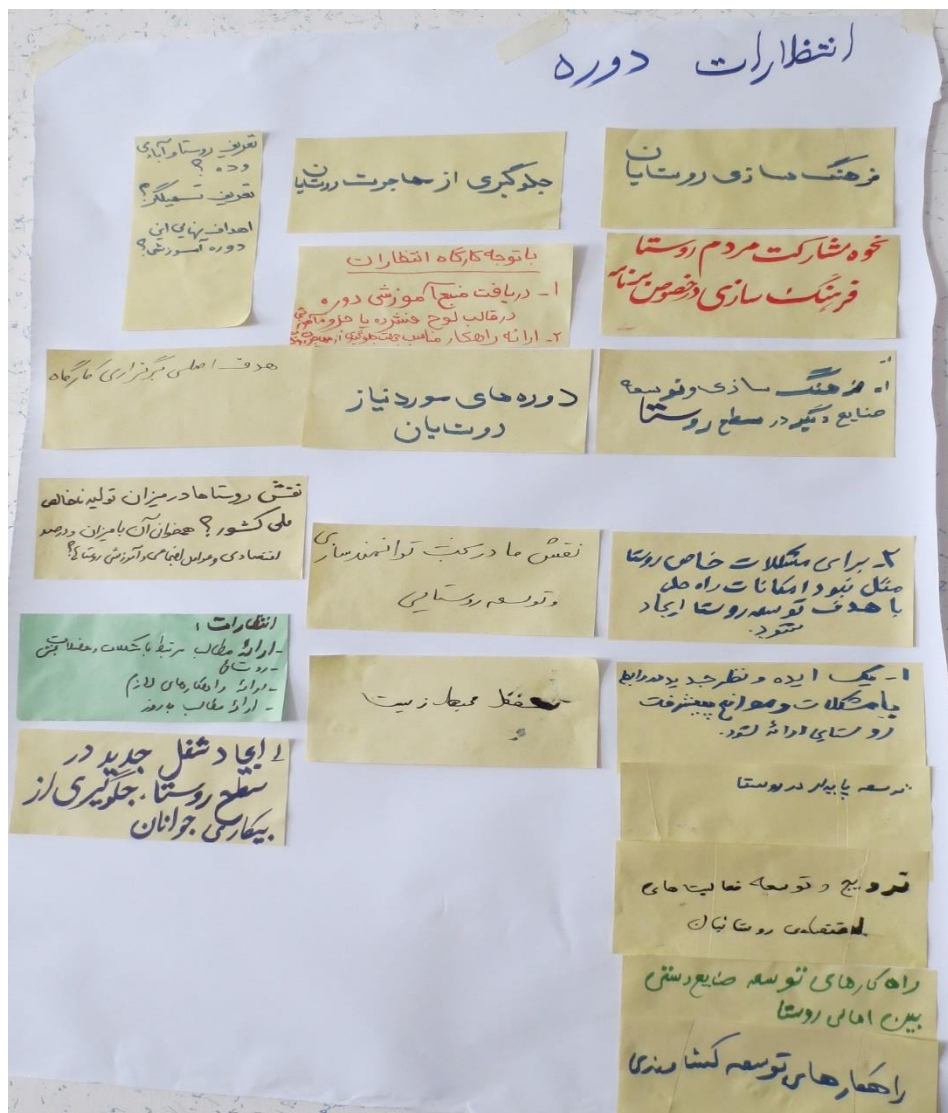 انتظارات دوره
فرهنگ سازی روستایان
نحوه مشارکت مردم روستا
فرهنگ سازی درخصوص برنامه
۱- فرهنگ سازی و توسعه
صنایع دیگر در سطح روستا
۲- برای مشکلات خاص روستا
مثل نبود امکانات راه حلی
با هدف توسعه روستا ایجاد
شود.
۱- یک ایده و نظر جدید در رابطه
با مشکلات و موانع پیشرفت
روستایی ارائه شود.
توسعه پایدار در روستا
ترویج و توسعه فعالیت های
اقتصادی روستائیان
راه کارهای توسعه صنایع دستی
بین اهالی روستا
راهکارهای توسعه کشاورزی
جلوگیری از مهاجرت روستایان
با توجه کارگاه انتظاران
۱- دریافت منبع آموزشی دوره
درقالب لوح فشرده یا جزوه
۲- ارائه راهکار مناسب جهت جلوگیری از
دوره های مورد نیاز
روستایان
نقش ما در توانمندسازی
و توسعه روستایی
محیط زیست
تعریف روستا و آبادی
و ده ؟
تعریف تسهیلگر؟
اهداف نهایی این
دوره آموزشی؟
هدف اصلی برگزاری کارگاه
نقش روستاها در میزان تولید ناخالص
ملی کشور؟ همخوان آن با میزان و درصد
اقتصادی و اجتماعی و آموزش روستا؟
انتظارات :
- ارائه مطالب مرتبط با مشکلات و معضلات
- روستای
- ارائه راهکارهای لازم
- ارائه مطالب به روز
۱ ایجاد شغل جدید در
سطح روستا. جلوگیری از
بیکاری جوانان